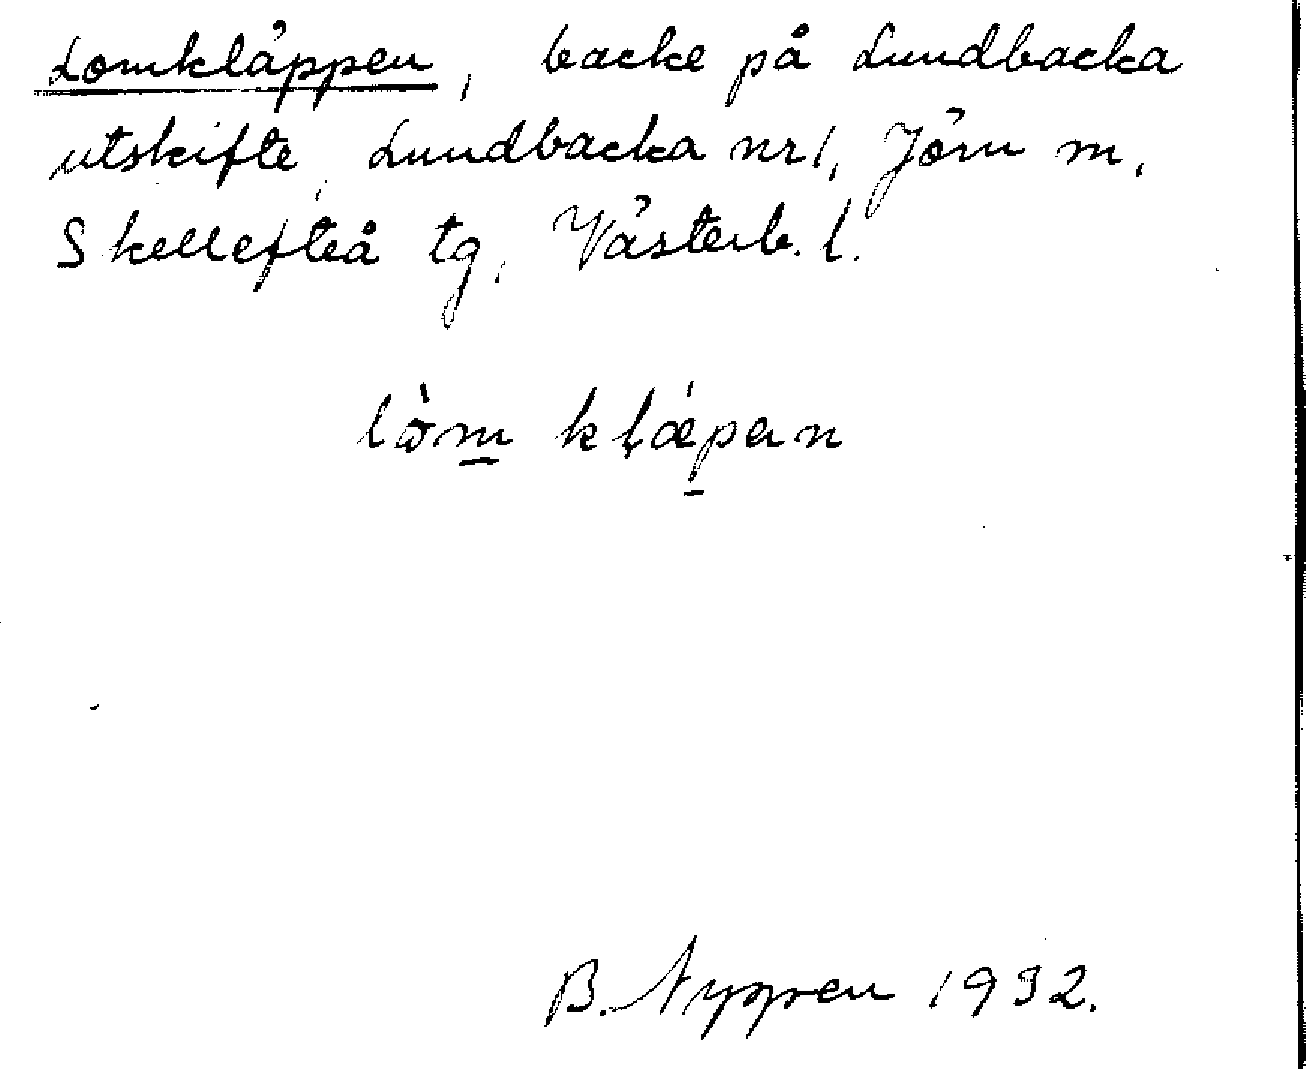 Lomkläppen, backe på Lundbacka
utskifte, Lundbacka nr 1, Jörn m,
Skellefteå tg, Västerb. l.
lòm klǽpen
B. Nygren 1932.